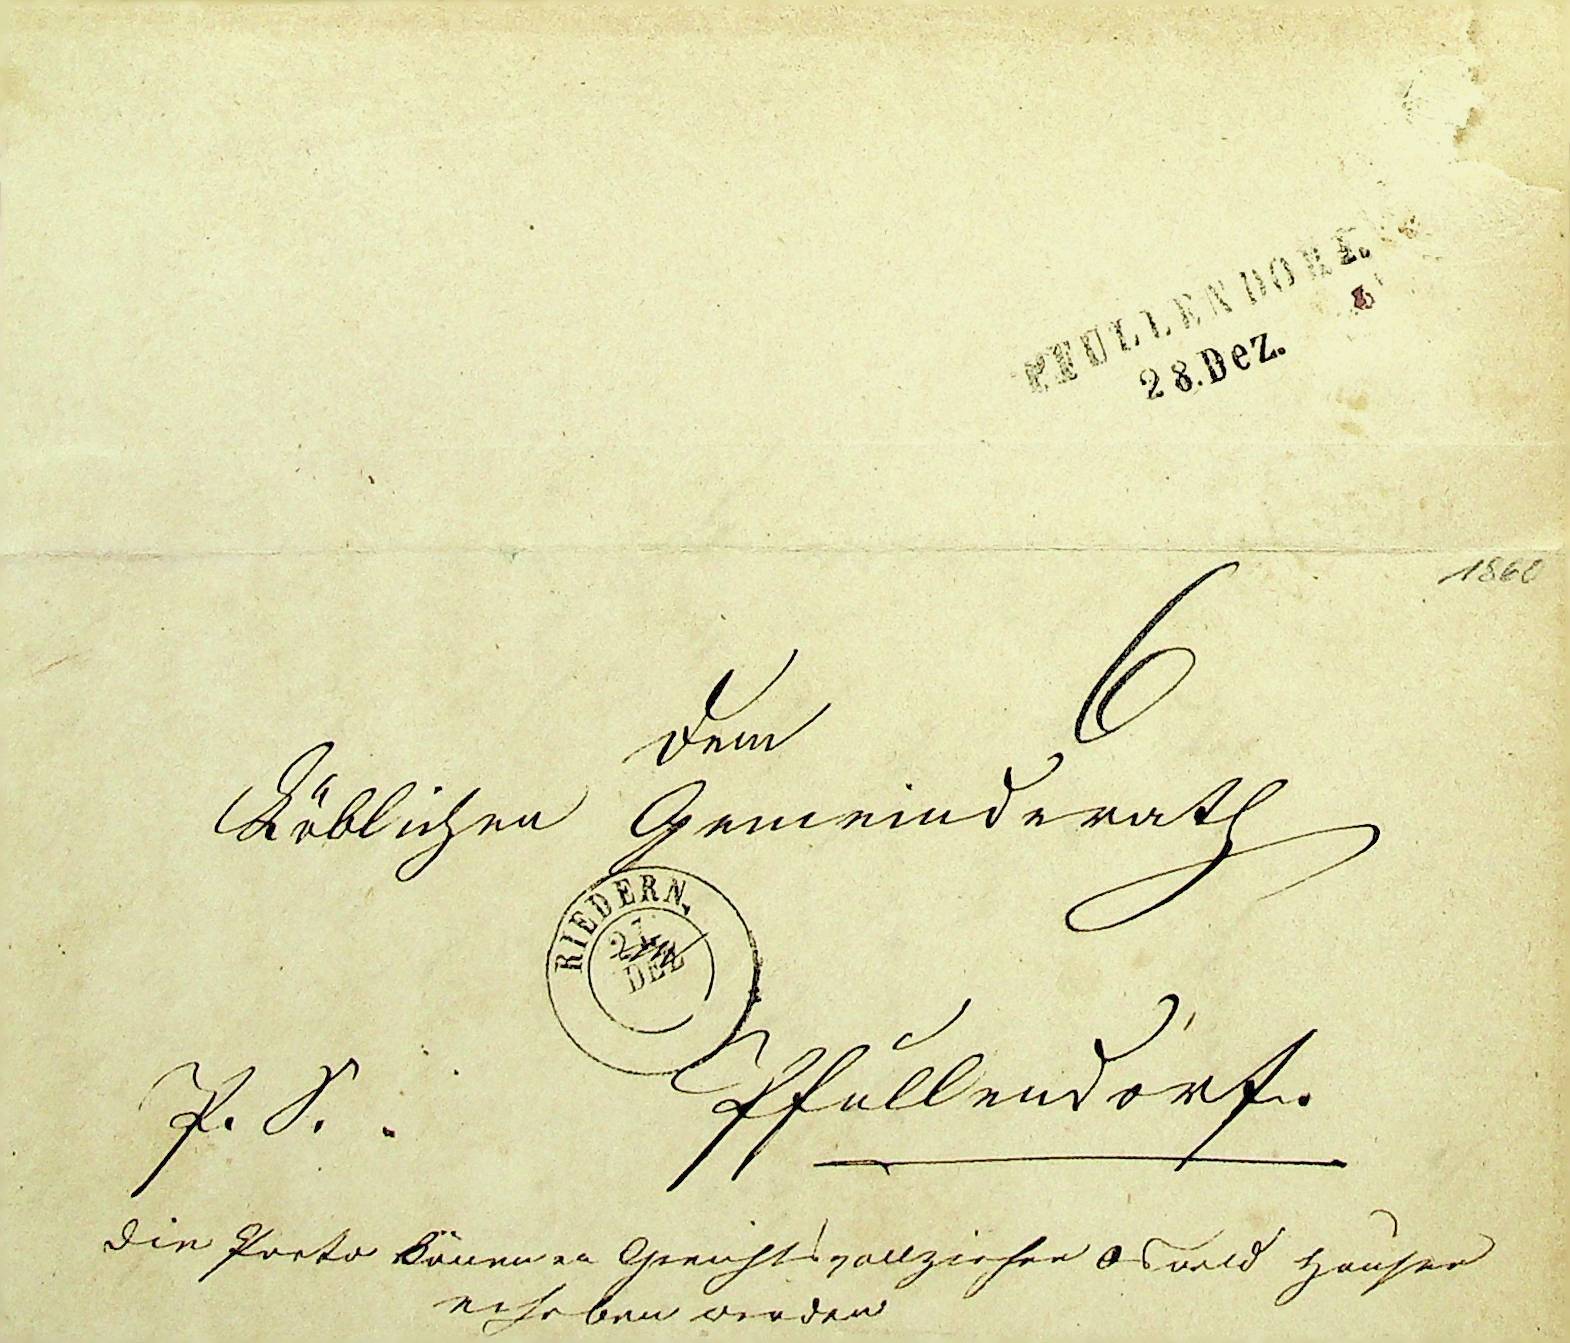 PFULLENDORF
28. Dez.
1860
6
Dem
Löblichen Gemeinderath
RIEDERN.
27
DEZ
Pfullendorf.
P. S.
Die Porto können Gerichtsvollzieher Oswald
erhoben werden